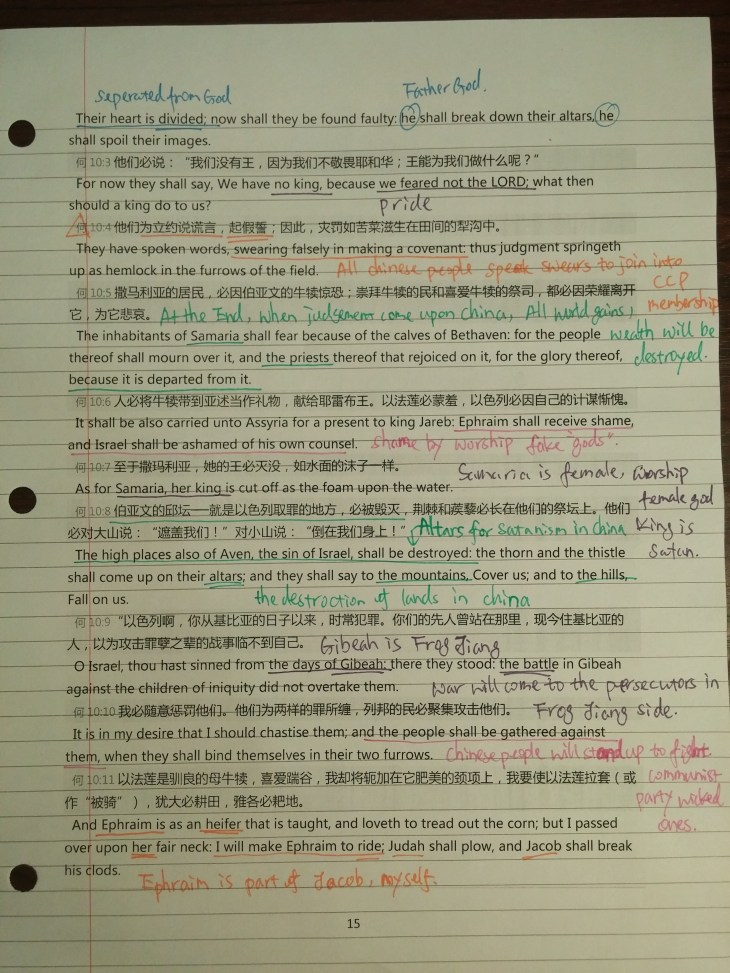 seperated from God Father God.
Their heart is divided; now shall they be found faulty: he shall break down their altars, he
shall spoil their images.
何 10:3 他们必说：“我们没有王，因为我们不敬畏耶和华；王能为我们做什么呢？”
For now they shall say, We have no king, because we feared not the LORD; what then
should a king do to us? pride
何 10:4 他们为立约说谎言，起假誓；因此，灾罚如苦菜滋生在田间的犁沟中。
They have spoken words, swearing falsely in making a covenant: thus judgment springeth
up as hemlock in the furrows of the field. All chinese people speak swears to join into
CCP
何 10:5 撒马利亚的居民，必因伯亚文的牛犊惊恐；崇拜牛犊的民和喜爱牛犊的祭司，都必因荣耀离开
membership
它，为它悲哀。 At the End, when judgement come upon china, All world gains,
The inhabitants of Samaria shall fear because of the calves of Bethaven: for the people wealth will be
thereof shall mourn over it, and the priests thereof that rejoiced on it, for the glory thereof, destroyed.
because it is departed from it.
何 10:6 人必将牛犊带到亚述当作礼物，献给耶雷布王。以法莲必蒙羞，以色列必因自己的计谋惭愧。
It shall be also carried unto Assyria for a present to king Jareb: Ephraim shall receive shame,
and Israel shall be ashamed of his own counsel. shame by worship fake "gods".
何 10:7 至于撒玛利亚，她的王必灭没，如水面的沫子一样。 Samaria is female, worship
As for Samaria, her king is cut off as the foam upon the water. female god
何 10:8 伯亚文的邱坛──就是以色列取罪的地方，必被毁灭，荆棘和蒺藜必长在他们的祭坛上。他们
King is
必对大山说：“遮盖我们！”对小山说：“倒在我们身上！” Altars for Satanism in china
Satan.
The high places also of Aven, the sin of Israel, shall be destroyed: the thorn and the thistle
shall come up on their altars; and they shall say to the mountains, Cover us; and to the hills,
Fall on us. the destroction of lands in china
何 10:9 “以色列啊，你从基比亚的日子以来，时常犯罪。你们的先人曾站在那里，现今住基比亚的
人，以为攻击罪孽之辈的战事临不到自己。 Gibeah is Frog Jiang
O Israel, thou hast sinned from the days of Gibeah: there they stood: the battle in Gibeah
against the children of iniquity did not overtake them. war will come to the persecutors in
何 10:10 我必随意惩罚他们。他们为两样的罪所缠，列邦的民必聚集攻击他们。 Frog Jiang side.
It is in my desire that I should chastise them; and the people shall be gathered against
them, when they shall bind themselves in their two furrows. chinese people will stand up to fight
何 10:11 以法莲是驯良的母牛犊，喜爱踹谷，我却将轭加在它肥美的颈项上，我要使以法莲拉套（或
communist
作“被骑”），犹大必耕田，雅各必耙地。 party wicked
And Ephraim is as an heifer that is taught, and loveth to tread out the corn; but I passed
ones.
over upon her fair neck: I will make Ephraim to ride; Judah shall plow, and Jacob shall break
his clods. Ephraim is part of Jacob, myself.
15